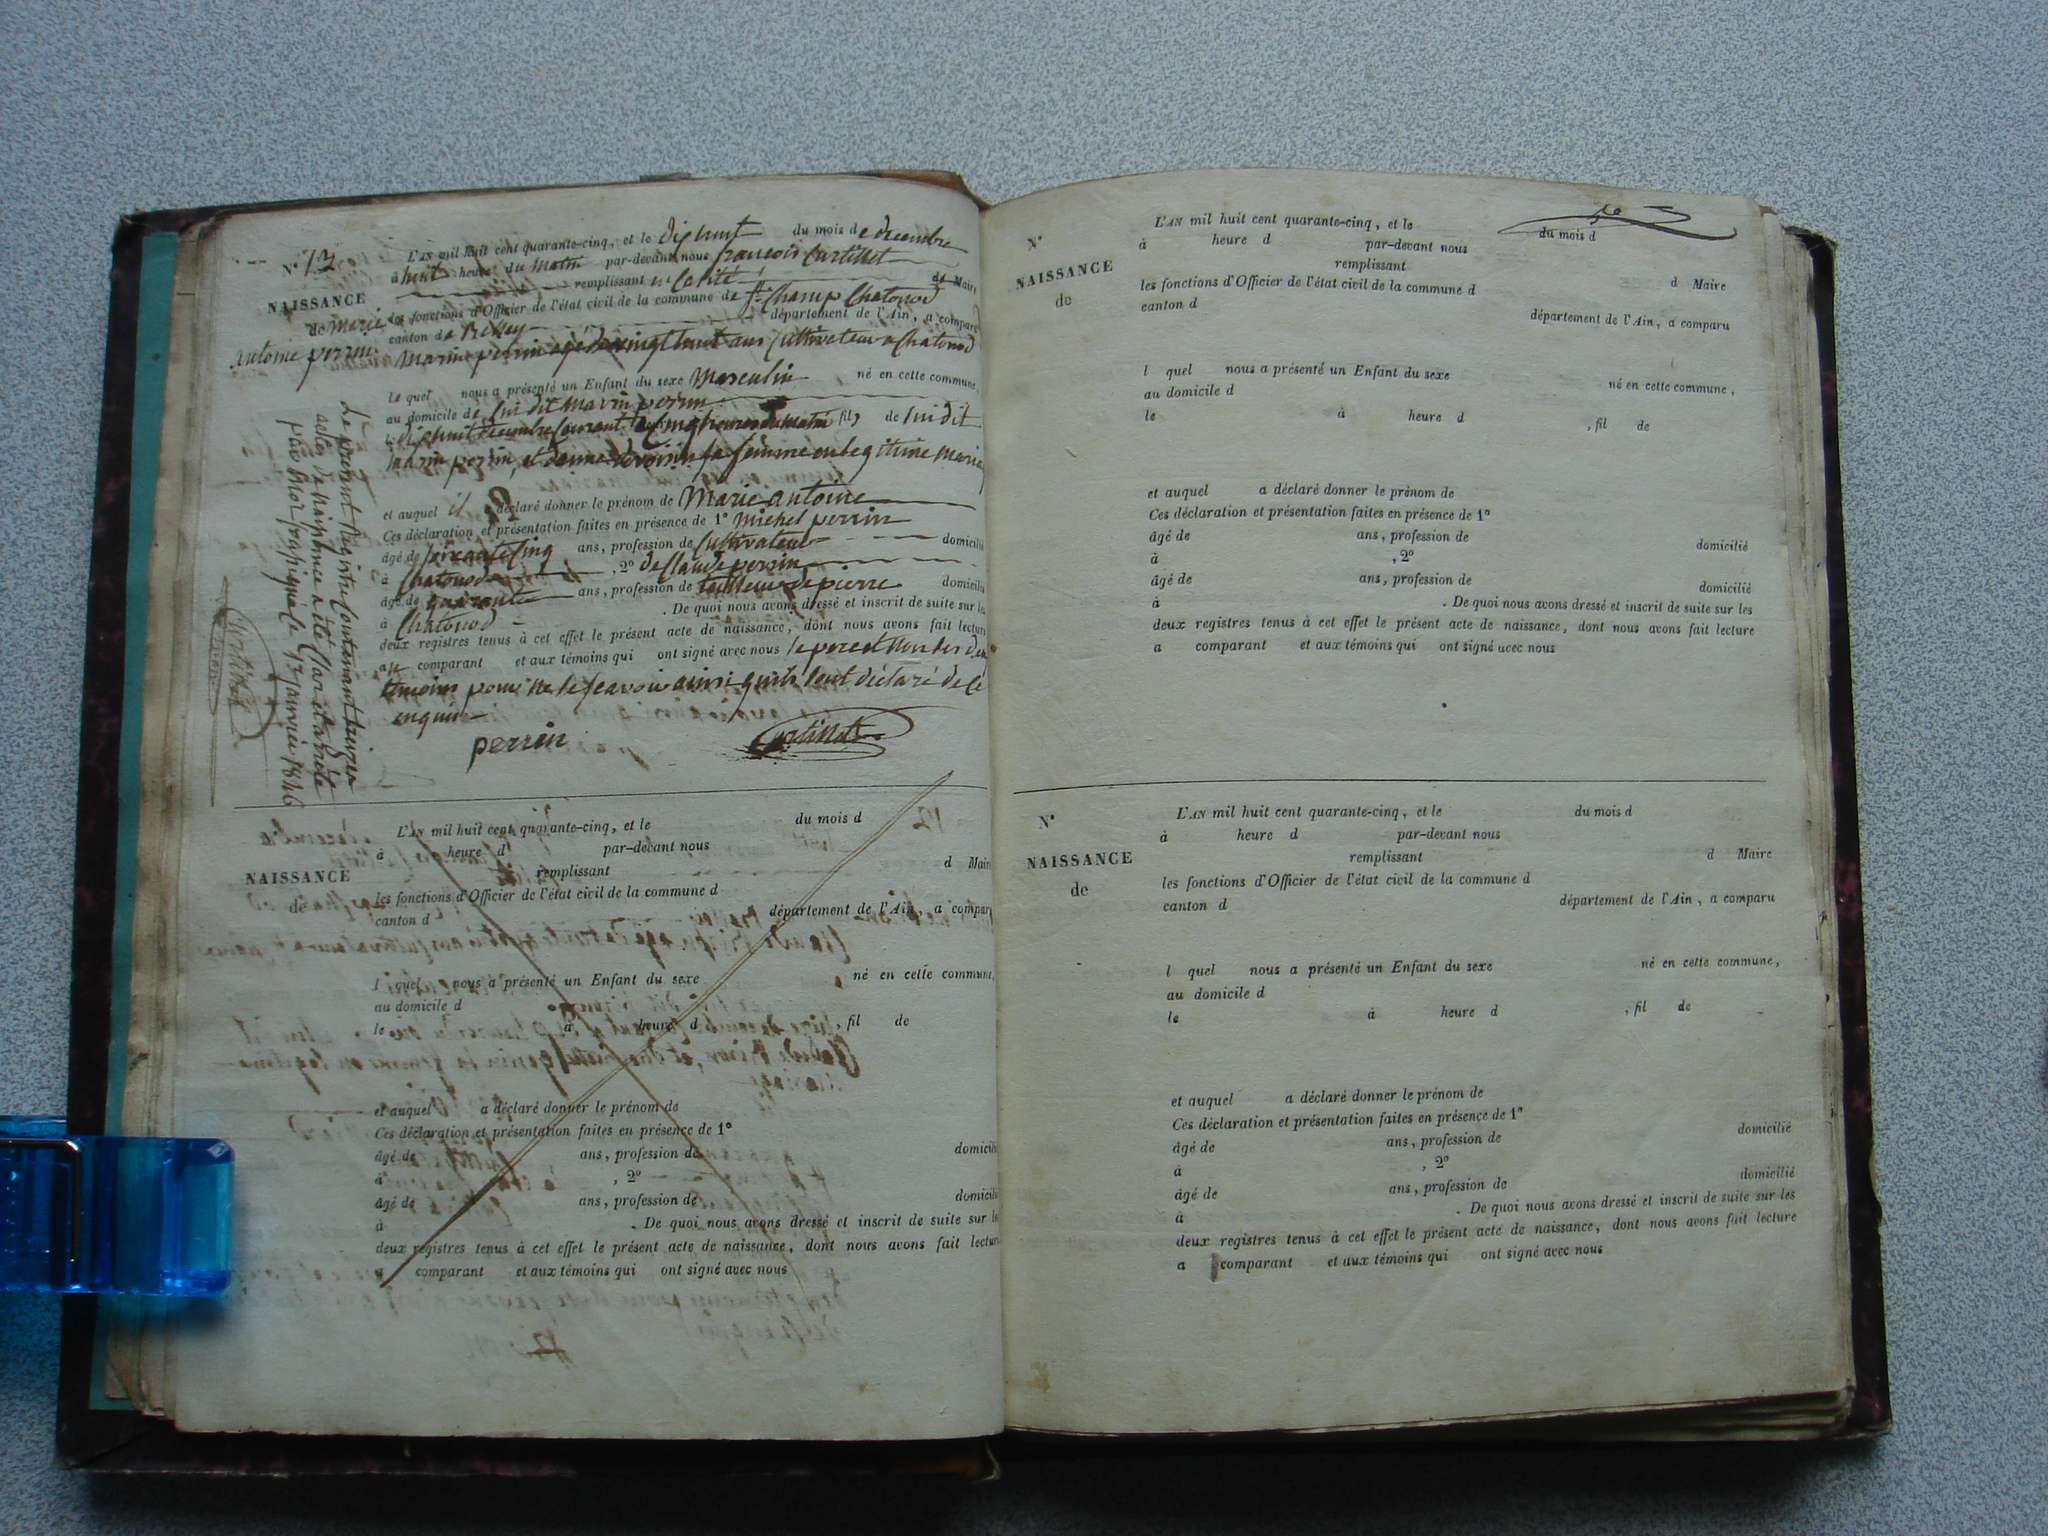 N° 13
NAISSANCE
de Marie
antoine perrin
L'AN mil huit cent quarante-cinq, et le dix huit du mois de decembre
à huit heure du matin par-devant nous françois Curtillet
remplissant en calité de Maire
les fonctions d'Officier de l'état civil de la commune de St Champ Chatonod
canton de Belley département de l'Ain, a comparu
Marin perrin agé de vingt huit ans Cultivateur a Chatonod
le quel nous a présenté un Enfant du sexe Masculin né en cette commune,
au domicile de lui dit Marin perrin
le dix huit decembre Courant à cinq heures du matin fils de lui dit
marin perrin, et sa femme en legitime mariage
et auquel il a déclaré donner le prénom de Marie antoine
Ces déclaration et présentation faites en présence de 1° Michel perrin
âgé de soixante cinq ans, profession de Cultivateur domicilié
à Chatonod, 2° de Claude perrin
âgé de quarante ans, profession de tailleur de pierre domicilié
à Chatonod. De quoi nous avons dressé et inscrit de suite sur les
deux registres tenus à cet effet le présent acte de naissance, dont nous avons fait lecture
au comparant et aux témoins qui ont signé avec nous le pere et l'un des deux
temoins pour ne le scavoir ainsi quils l'ont déclaré de ce
enquis
perrin Curtillet
Le présent Registre Contenant treize
actes de naissance a été Clos et arrêté
par Moi soussigné le 13 janvier 1846
Curtillet
NAISSANCE
de
L'AN mil huit cent quarante-cinq, et le du mois d
à heure d par-devant nous
remplissant d Maire
les fonctions d'Officier de l'état civil de la commune d
canton d département de l'Ain, a comparu
l quel nous a présenté un Enfant du sexe né en cette commune,
au domicile d
le à heure d, fil de
et auquel a déclaré donner le prénom de
Ces déclaration et présentation faites en présence de 1°
âgé de ans, profession de domicilié
à, 2°
âgé de ans, profession de domicilié
à. De quoi nous avons dressé et inscrit de suite sur les
deux registres tenus à cet effet le présent acte de naissance, dont nous avons fait lecture
a comparant et aux témoins qui ont signé avec nous
N°
NAISSANCE
de
L'AN mil huit cent quarante-cinq, et le du mois d
à heure d par-devant nous
remplissant d Maire
les fonctions d'Officier de l'état civil de la commune d
canton d département de l'Ain, a comparu
l quel nous a présenté un Enfant du sexe né en cette commune,
au domicile d
le à heure d, fil de
et auquel a déclaré donner le prénom de
Ces déclaration et présentation faites en présence de 1°
âgé de ans, profession de domicilié
à, 2°
âgé de ans, profession de domicilié
à. De quoi nous avons dressé et inscrit de suite sur les
deux registres tenus à cet effet le présent acte de naissance, dont nous avons fait lecture
a comparant et aux témoins qui ont signé avec nous
N°
NAISSANCE
de
L'AN mil huit cent quarante-cinq, et le du mois d
à heure d par-devant nous
remplissant d Maire
les fonctions d'Officier de l'état civil de la commune d
canton d département de l'Ain, a comparu
l quel nous a présenté un Enfant du sexe né en cette commune,
au domicile d
le à heure d, fil de
et auquel a déclaré donner le prénom de
Ces déclaration et présentation faites en présence de 1°
âgé de ans, profession de domicilié
à, 2°
âgé de ans, profession de domicilié
à. De quoi nous avons dressé et inscrit de suite sur les
deux registres tenus à cet effet le présent acte de naissance, dont nous avons fait lecture
a comparant et aux témoins qui ont signé avec nous